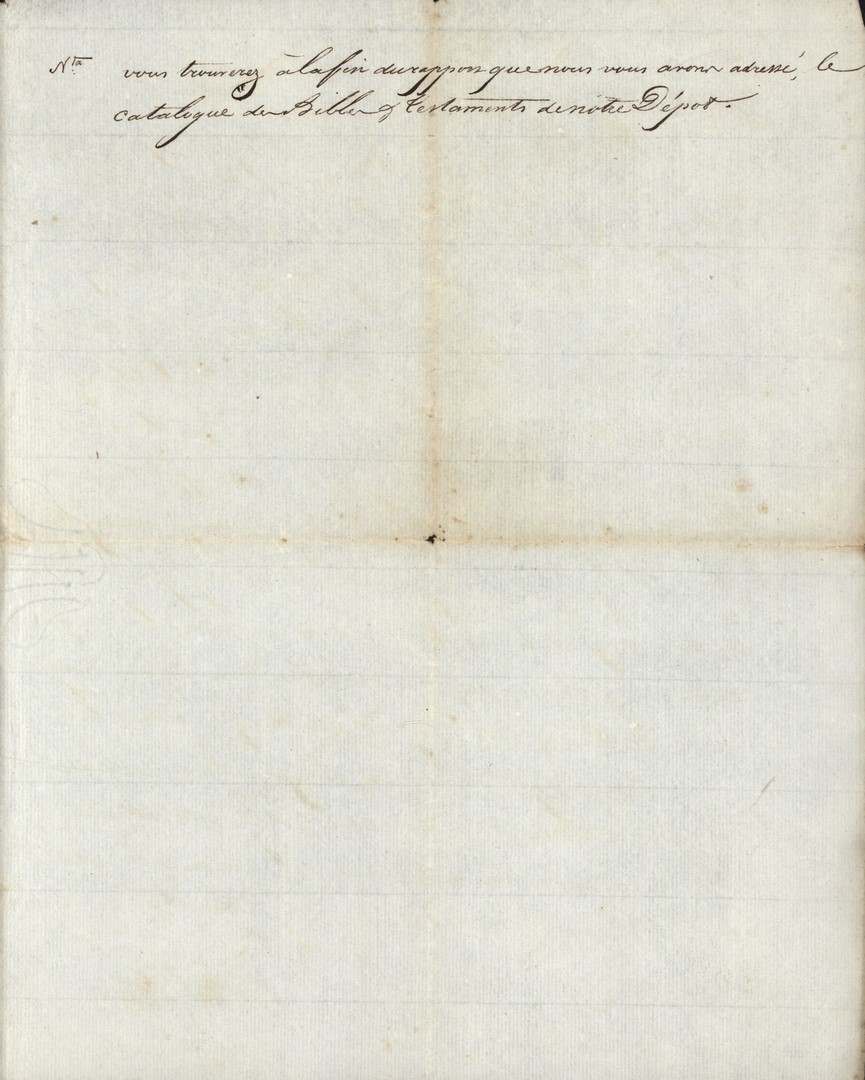 Nta vous trouverez à la fin du rapport que nous vous avons adressé, le
catalogue des Bibles & testaments de nôtre Dépot.